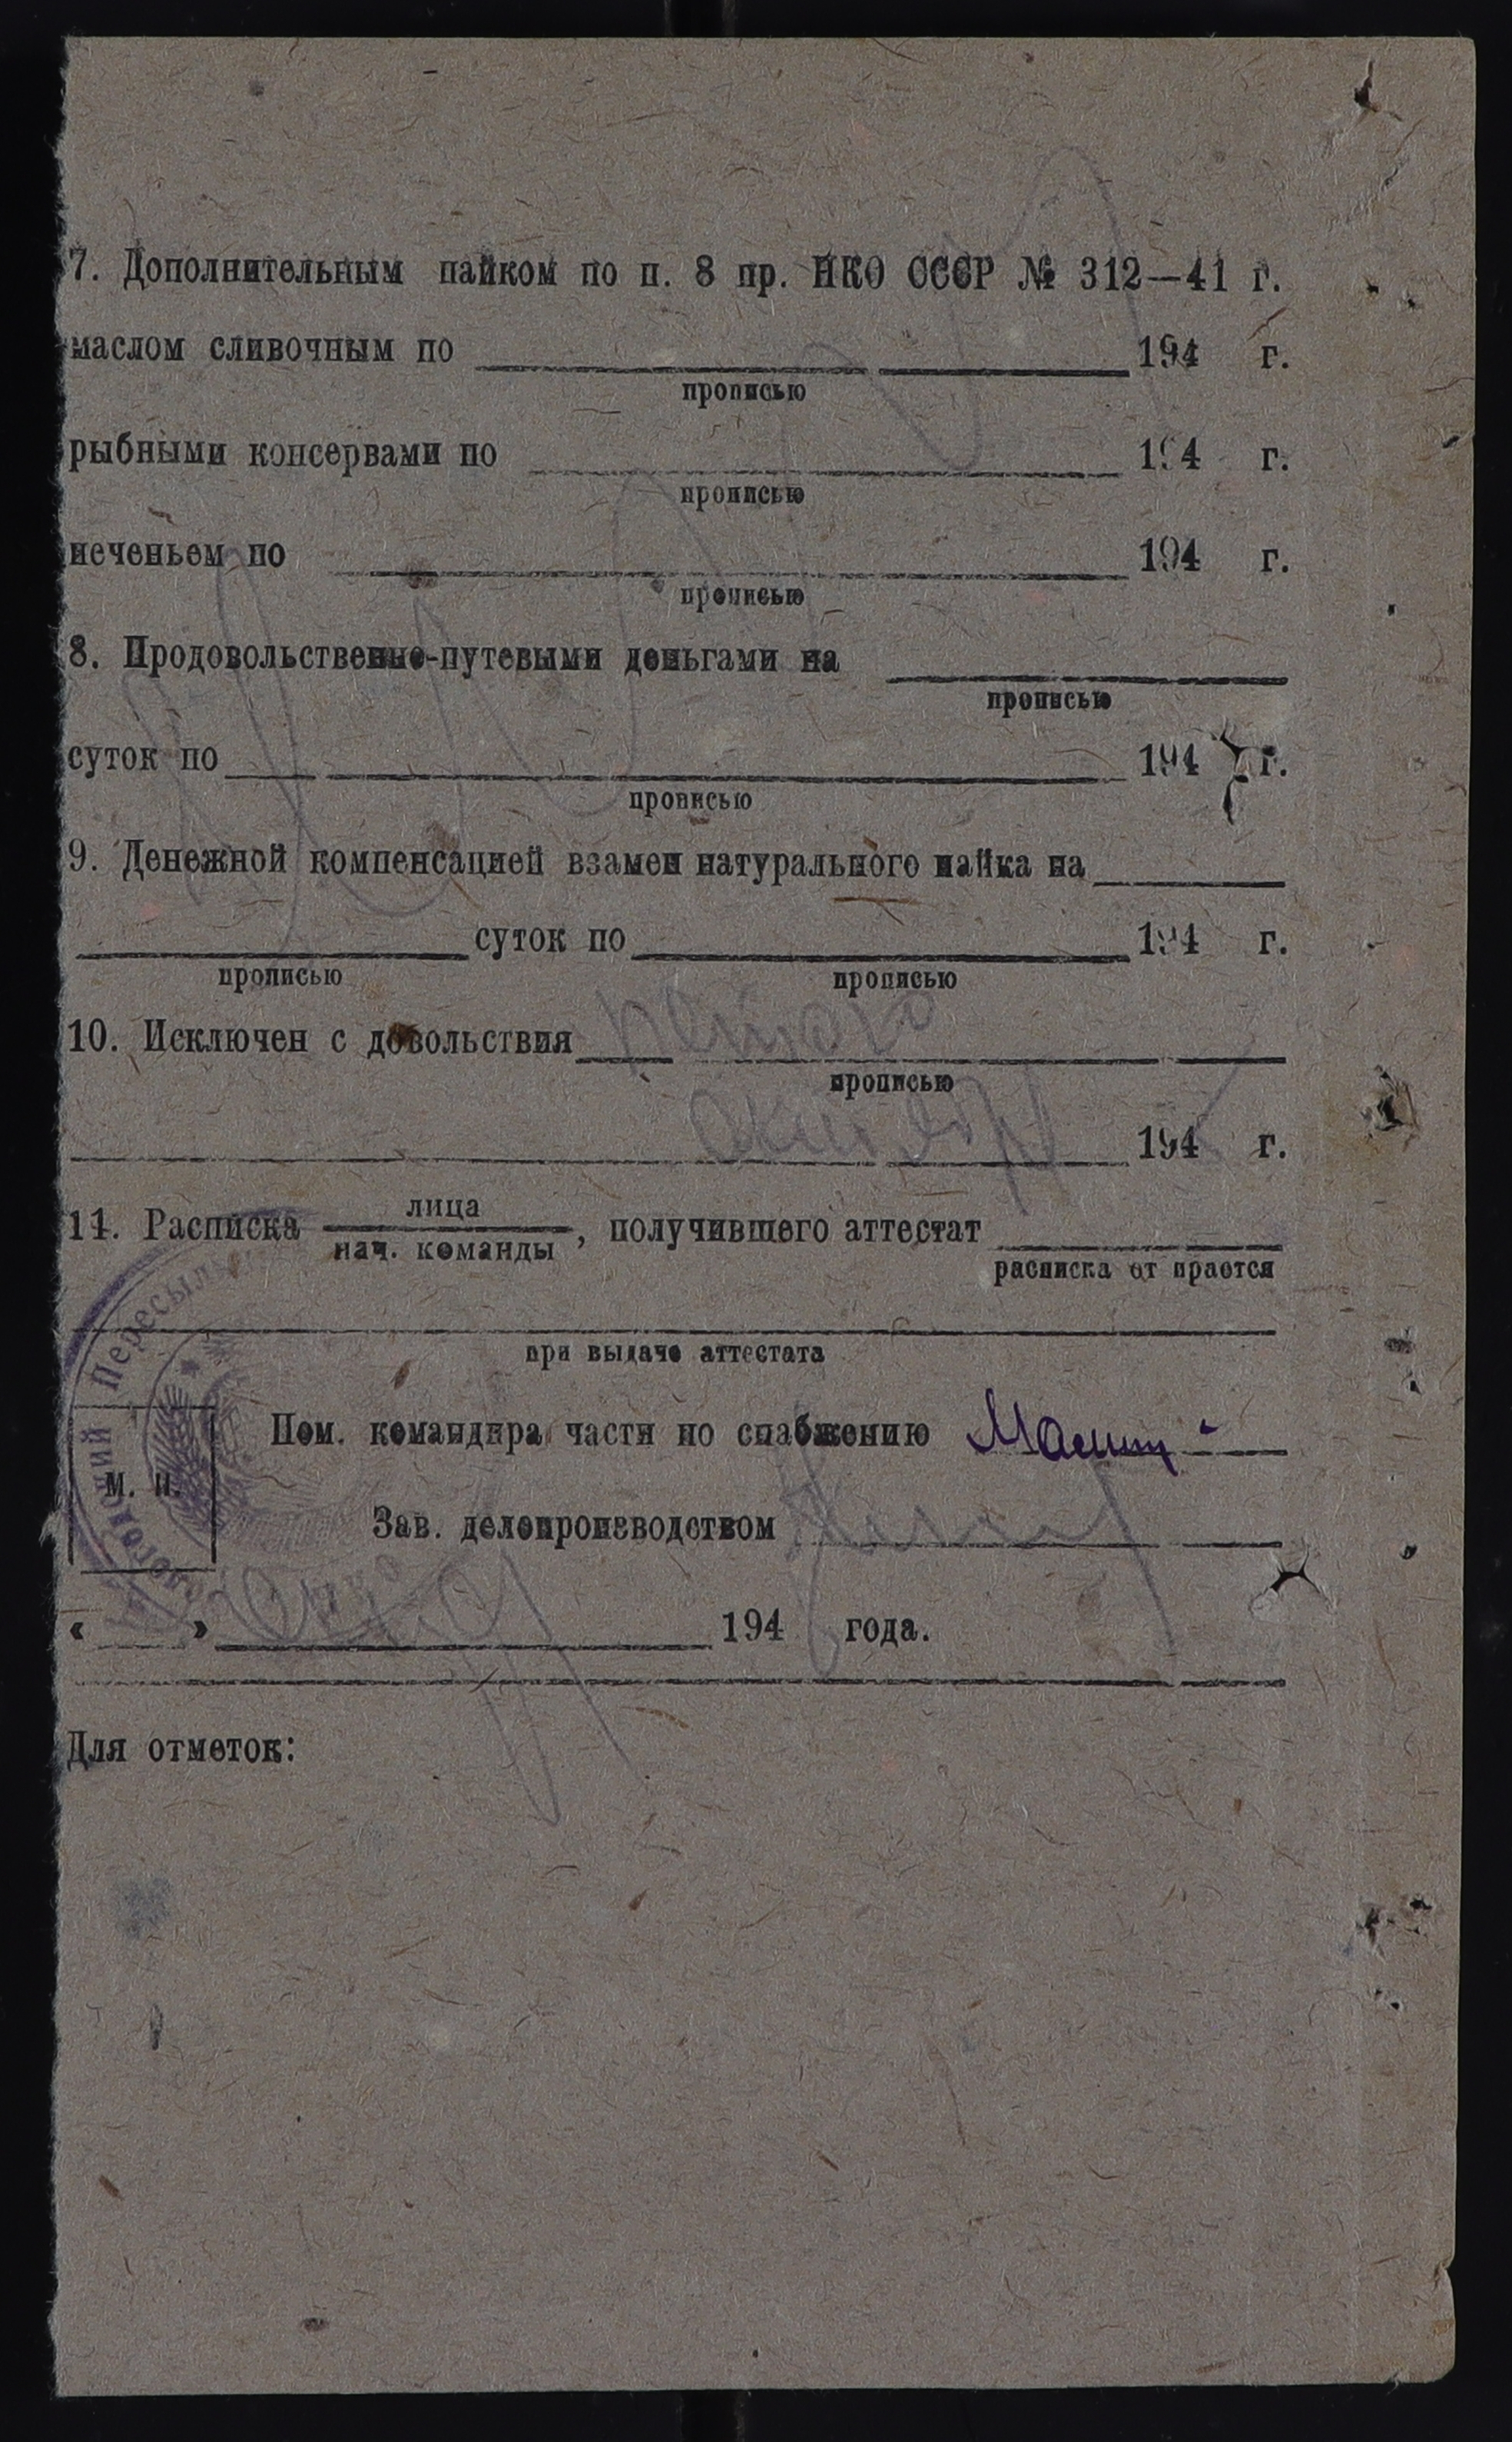 7. Дополнительным пайком по п. 8 пр. НКО СССР № 312—41 г.
маслом сливочным по 194 г.
прописью
рыбными консервами по 194 г.
прописью
печеньем по 194 г.
прописью
8. Продовольственно-путевыми деньгами на
прописью
суток по 194 г.
прописью
9. Денежной компенсацией взамен натурального пайка на
суток по 194 г.
прописью прописью
10. Исключен с довольствия пятого
прописью
октября 194 г.
11. Расписка лица
нач. команды , получившего аттестат
расписка от прается
при выдаче аттестата
Пересыль
М. П.
Пом. командира части по снабжению
Зав. делопроизводством
« » 194 года.
Для отметок: